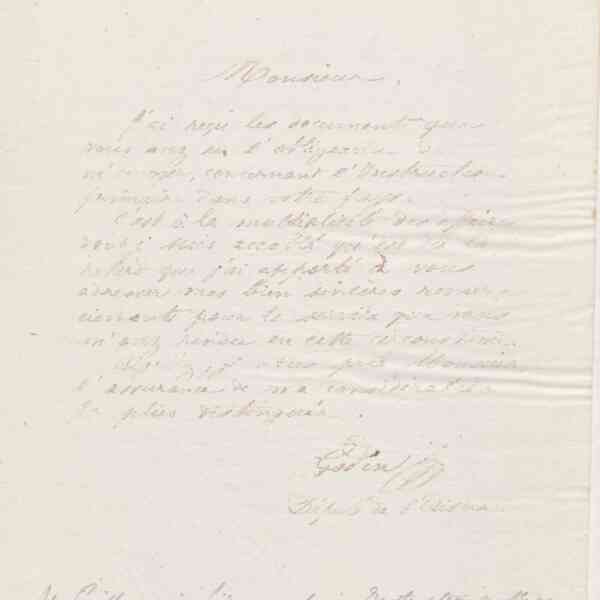 Monsieur,
J'ai reçu les documents que
vous avez eu l'obligeance
m'envoyer, concernant l'Instruction
primaire dans votre pays.
C'est à la multiplicité des affaires
dont je suis accablé qu'est dû le
retard que j'ai apporté à vous
adresser mes bien sincères remer-
ciements pour le service que vous
m'avez rendu en cette circonstance.
je vous prie, Monsieur,
l'assurance de ma considération
la plus distinguée.
Godin
Député de l'Aisne